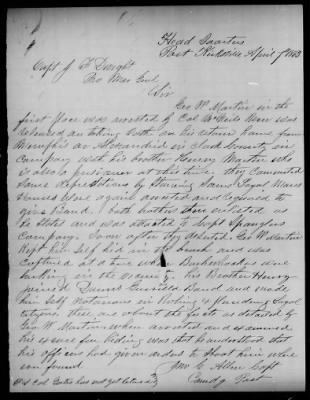 Head Quarters
Post Kirksville April 7 1863
Capt J F Dwight
Pro Mar Genl
Sir
Geo W. Martin in the
first place was arrested by Col Mc Neils Men was
released on taking oath on his return home from
Memphis at Alexandria in Clark County in
Company with his brother Henry Martin who
is also a prisoner at this time they Committed
some depredations by Stoning some Loyal Mans
Houses were again arrested and required to
give Bond. both brothers then enlisted as
in State and was attached to Capt
Company. Soon after they deserted Geo W Martin
Kept him self hid in the brush and was
captured at a time when Bushwhackers were
lurking in the vicinity. his Brother Henry
joined Band and made
him self Notorious in Robing & plundering Loyal
citizens these are about the facts as detailed by
Geo W. Martin when arrested and examined
his excuse for hiding was that he understood that
his officers had given orders to Shoot him where
ever found
Jno C. Allen Capt
Comdg Post